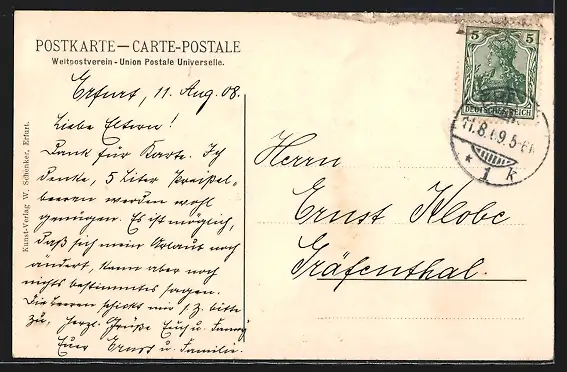 POSTKARTE — CARTE-POSTALE
Weltpostverein - Union Postale Universelle.
Erfurt, 11. Aug. 08.
Liebe Eltern!
Dank für Karte. Ich
denke, 5 Liter Preißel-
beeren werden wohl
genügen. Es ist möglich,
daß sich mein Urlaub noch
ändert, kann aber noch
nichts bestimmtes sagen.
Die beeren schickt mir s. Z. bitte
zu, herzl. Grüße Euch u. Fanny
Euer Ernst u. Familie.
Herrn
Ernst Klobe
Gräfenthal.
Kunst-Verlag W. Schenker, Erfurt.
5 5
DEUTSCHES REICH
11.8. 9.5-6N
* 1 k